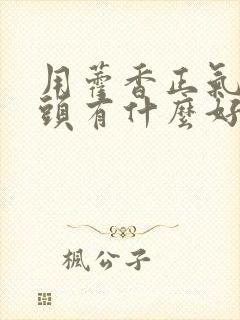 用藿香正氣
頭有什麼好
楓公子